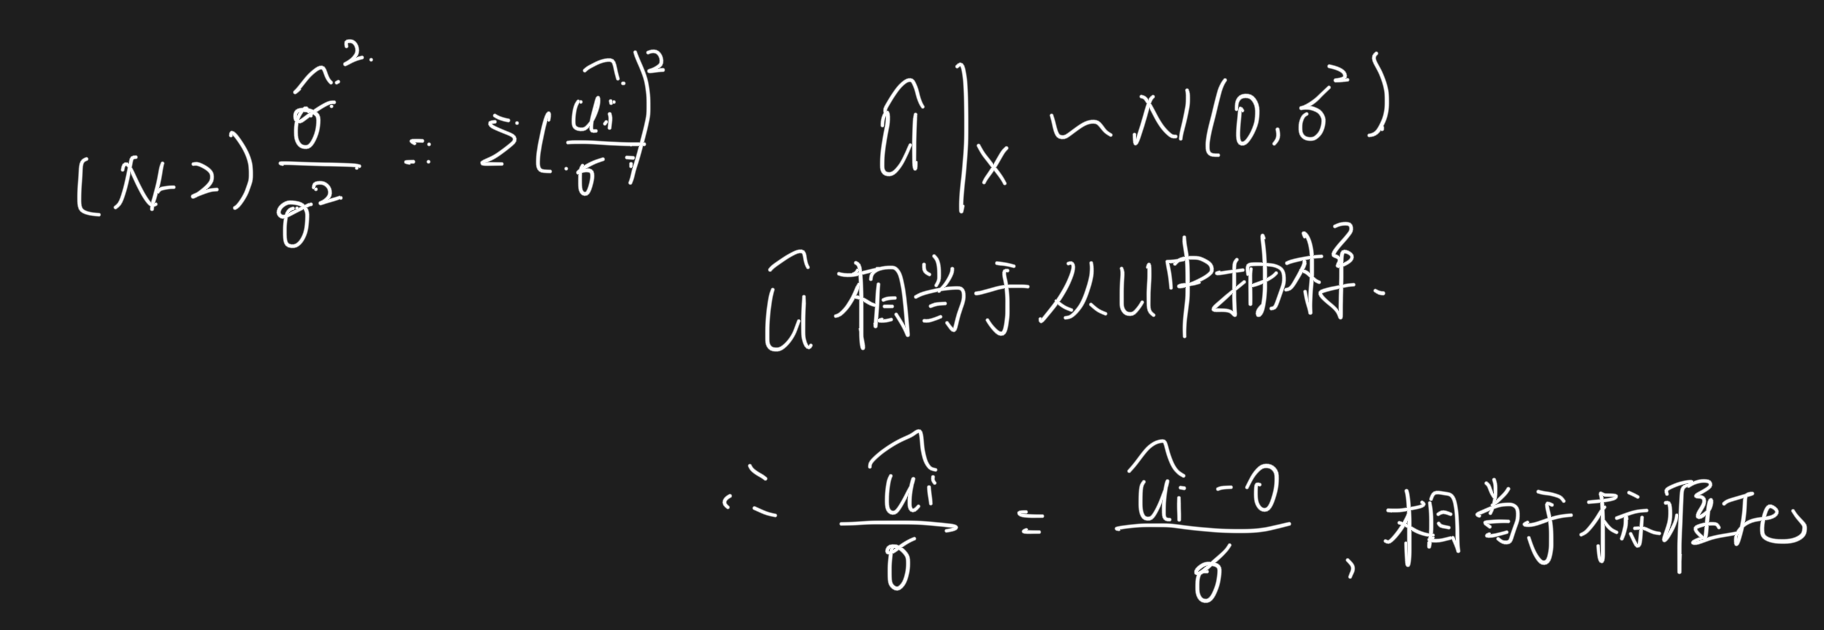 (N-2) σ̂²/σ² = Σ(ûi/σ)²
û|x ~ N(0, σ²)
û 相当于从u中抽样.
∴ ûi/σ = (ûi - 0)/σ , 相当于标准化